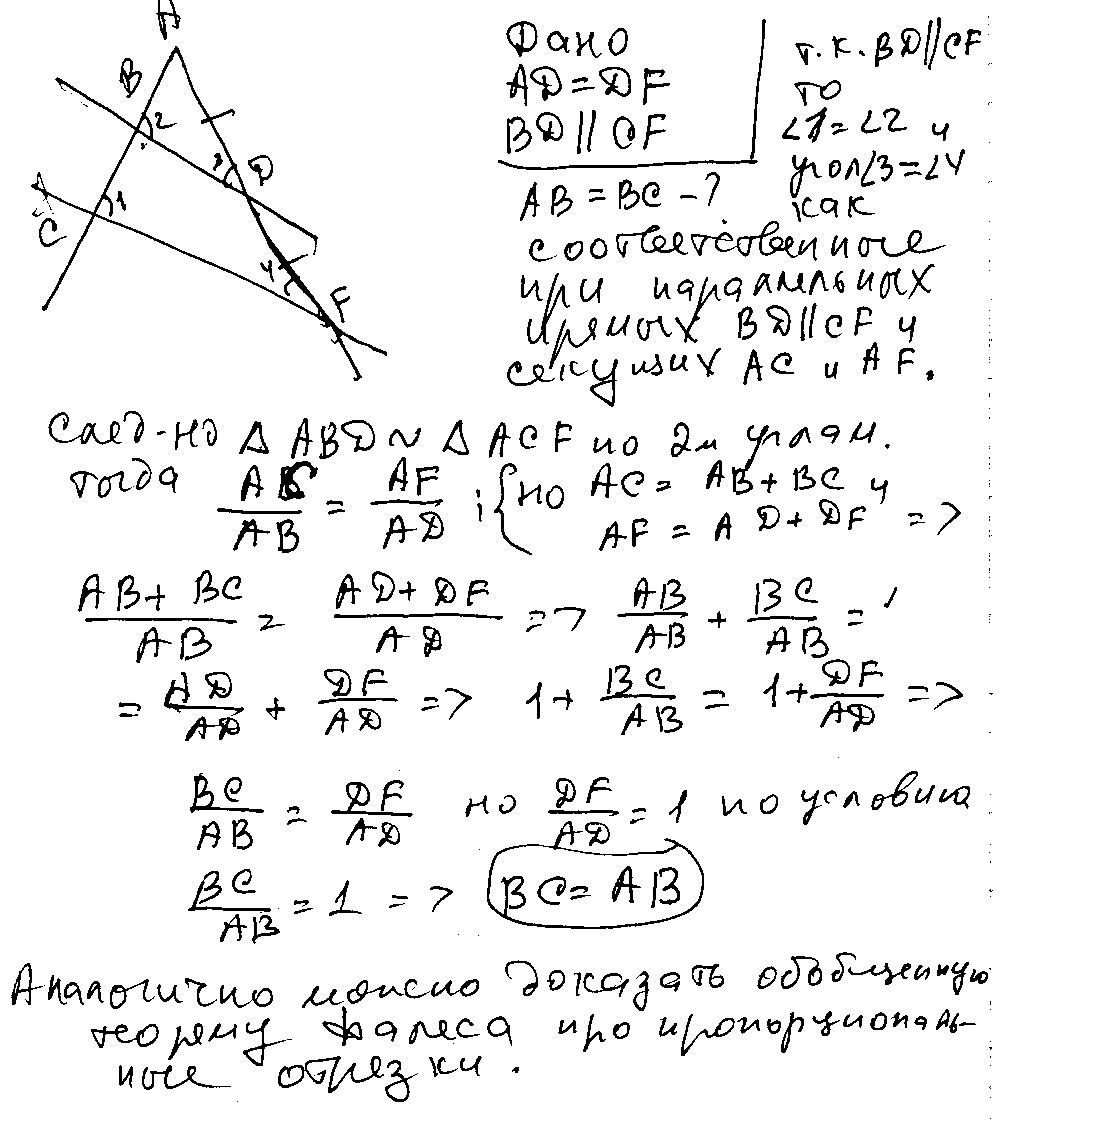 A
B
2
3
D
C
1
4
F
Дано
AD = DF
BD || CF
AB = BC - ?
т.к. BD || CF
то
∠1 = ∠2 и
угол ∠3 = ∠4
как
соответственные
при паралельных
прямых BD || CF и
секущих AC и AF.
След-но Δ ABD ~ Δ ACF по 2м углам.
тогда AC/AB = AF/AD ; { но AC = AB + BC и
AF = AD + DF =>
(AB + BC)/AB = (AD + DF)/AD => AB/AB + BC/AB =
= AD/AD + DF/AD => 1 + BC/AB = 1 + DF/AD =>
BC/AB = DF/AD но DF/AD = 1 по условию
BC/AB = 1 => BC = AB
Аналогично можно доказать обобщенную
теорему Фалеса про пропорциональ-
ные отрезки.